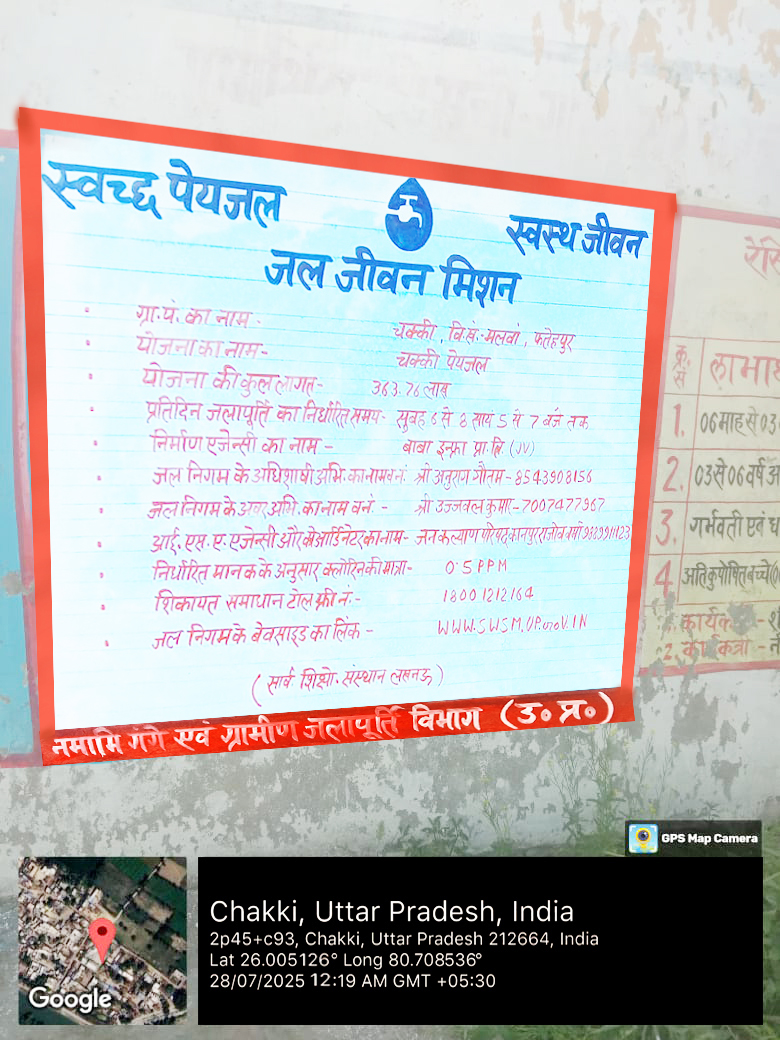 स्वच्छ पेयजल
स्वस्थ जीवन
जल जीवन मिशन
ग्रा.पं. का नाम - चक्की, वि.ख.-मलवां, फतेहपुर
योजना का नाम - चक्की पेयजल
योजना की कुल लागत- 363.76 लाख
प्रतिदिन जलापूर्ति का निर्धारित समय- सुबह 6 से 8 सायं 5 से 7 बजे तक
निर्माण एजेन्सी का नाम - बाबा इन्फ्रा प्रा.लि. (JV)
जल निगम के अधिशाषी अभि. का नाम व नं. श्री अनुराग गौतम-8543908156
जल निगम के अवर अभि. का नाम व नं. - श्री उज्जवल कुमार-7007477967
आई.एस.ए. एजेन्सी और कोआर्डिनेटर का नाम- जन कल्याण परिषद कानपुर
निर्धारित मानक के अनुसार क्लोरिन की मात्रा- 0.5 PPM
शिकायत समाधान टोल फ्री नं:- 18001212164
जल निगम के बेवसाइड का लिंक - WWW.SWSM.UP.GOV.IN
संस्थान लखनऊ)
नमामि गंगे एवं ग्रामीण जलापूर्ति विभाग (उ० प्र०)
क्र.
सं
1. 06 माह से 03
2. 03 से 06 वर्ष
3. गर्भवती एवं
4. अतिकुपोषित बच्चे
GPS Map Camera
Google
Chakki, Uttar Pradesh, India
2p45+c93, Chakki, Uttar Pradesh 212664, India
Lat 26.005126° Long 80.708536°
28/07/2025 12:19 AM GMT +05:30